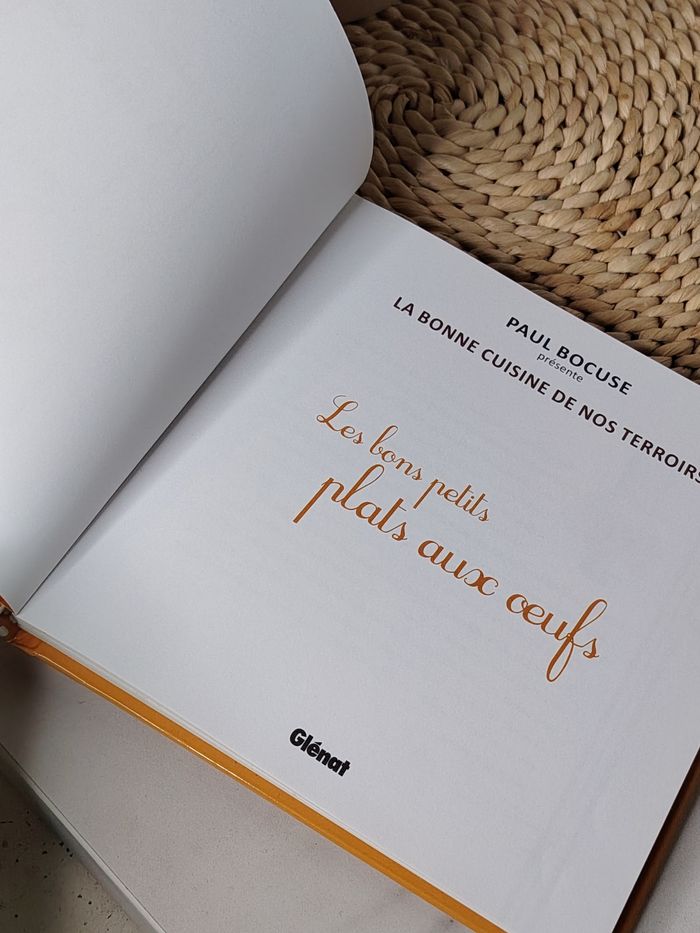 PAUL BOCUSE
présente
LA BONNE CUISINE DE NOS TERROIRS
Les bons petits
plats aux œufs
Glénat